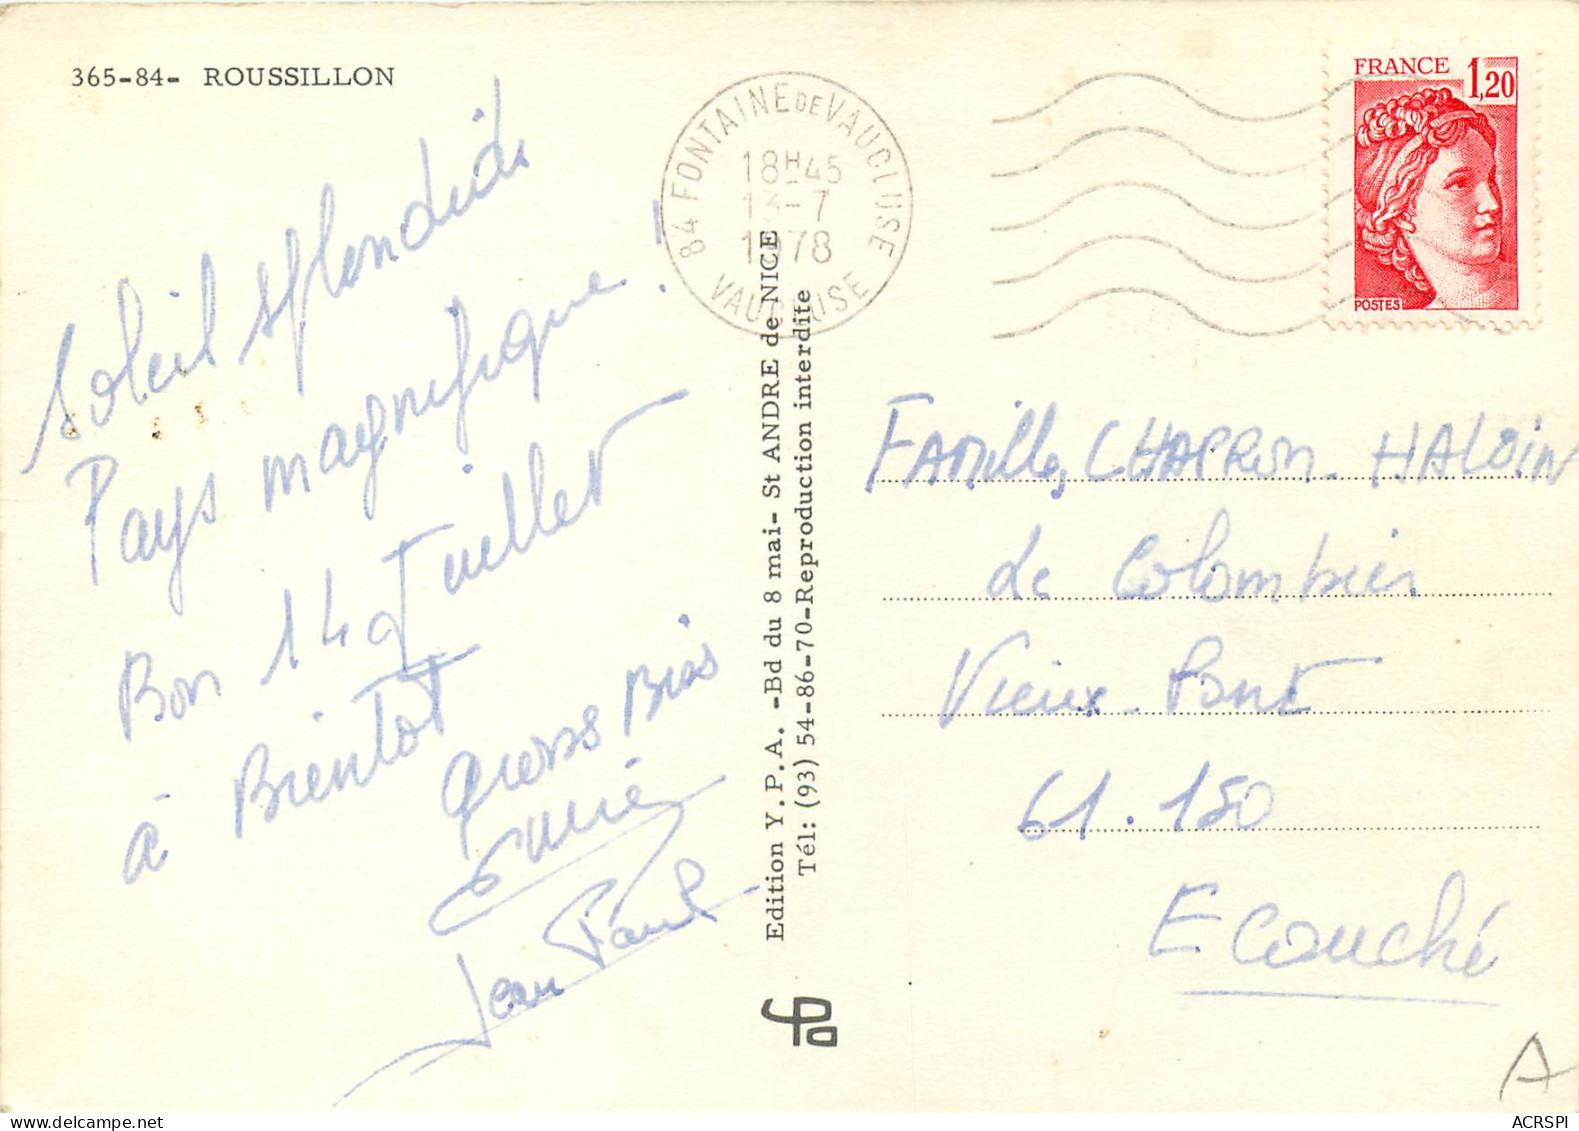 365-84- ROUSSILLON
Soleil splendide
Pays magnifique !
Bon 14 Juillet
à Bientot
Gross Bises
Jean Paul
84 FONTAINE DE VAUCLUSE
18H45
13-7
1978
VAUCLUSE
FRANCE 1,20
POSTES
Edition Y.P.A. -Bd du 8 mai- St ANDRE de NICE
Tél: (93) 54-86-70-Reproduction interdite
Famille, CHAPRON-HALOIN
Le Colombier
Vieux-Pont
61.150
Ecouché
A
ACRSPI